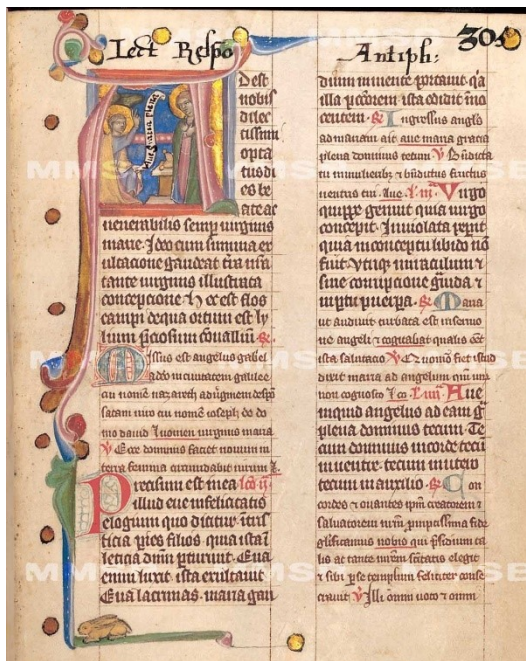 Lect Respo
Antiph:
305
Ave gratia plena
dest
nobis
dilec
tissimi
opta
tus di
es be
ate ac
uenerabilis semp uirginis
marie. Ideo cum summa ex
ultacione gaudeat tra nra
tante uirginis illustrata
concepcione. hec est flos
campi de qua ortum est ly
lium pciosum conuallium. R
Missus est angelus gabriel
ad
in ciuitatem galilee
cui nomen nazareth ad uirginem despon
satam uiro cui nomen ioseph de do
mo dauid & nomen uirginis maria
V Ecce dominus faciet nouum in
terra femina circumdabit uirum
Precisum est in ea lco ii
illud eue infelicitatis
elogium quo dicitur. in tris
ticia pies filios quia ista in
leticia dnm pturiuit. Eua
enim luxit. ista exultauit
Eua lacrimas. maria gau
dium in uentre portauit. qa
illa pccorem. ista edidit inno
centem. R Ingressus anglus
ad mariam ait aue maria gracia
plena dominus tecum V Bndicta
tu in mulieribz & bndictus fructus
uentris tui. Aue. L iii. Virgo
quippe genuit quia uirgo
concepit. Inuiolata pepit
quia in conceptu libido no
fuit. Vtriqz miraculum &
sine corrupcione guida &
in ptu puerpa. R Maria
ut audiuit turbata est in sermo
ne angeli & cogitabat qualis eet
ista salutacio V Et quomo fiet istud
dixit maria ad angelum qm uirum
non cognosco Lco. L iiii. Aue
inquid angelus ad eam g
plena dominus tecum. Te
cum dominus in corde tecum
in uentre. tecum in utero
tecum in auxilio. R Con
cordes & ouantes ipm creatorem &
saluatorem nrm pmptissima fide
glificamus nobis qui psidium ta
lis ac tante uirginem scitatis elegit
& sibi p se templum feliciter conse
crauit V Illi omni uoto & omni